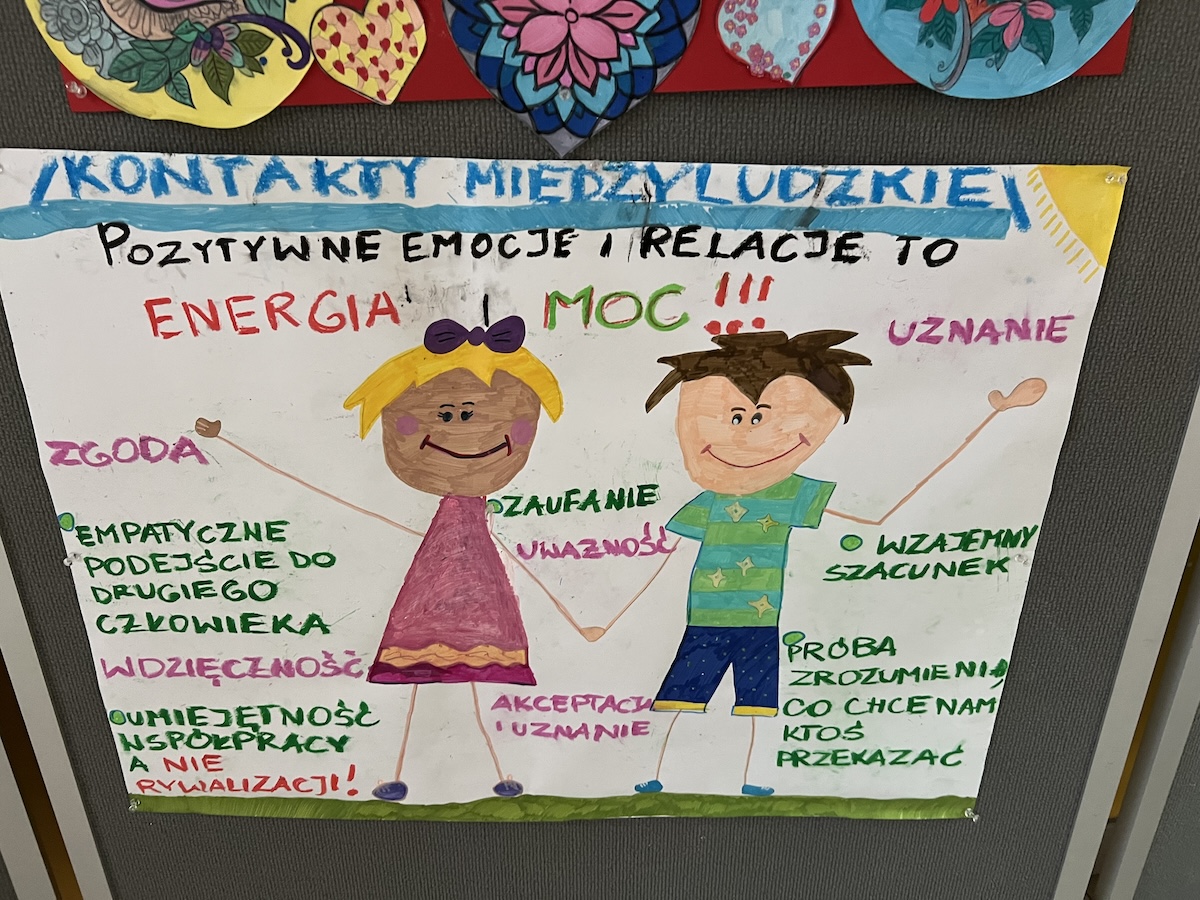 KONTAKTY MIĘDZYLUDZKIE
POZYTYWNE EMOCJE I RELACJE TO
ENERGIA I MOC !!!
UZNANIE
ZGODA
EMPATYCZNE
PODEJŚCIE DO
DRUGIEGO
CZŁOWIEKA
WDZIĘCZNOŚĆ
UMIEJĘTNOŚĆ
WSPÓŁPRACY
A NIE
RYWALIZACJI!
ZAUFANIE
UWAŻNOŚĆ
AKCEPTACJA
I UZNANIE
WZAJEMNY
SZACUNEK
PRÓBA
ZROZUMIENIA,
CO CHCE NAM
KTOŚ
PRZEKAZAĆ